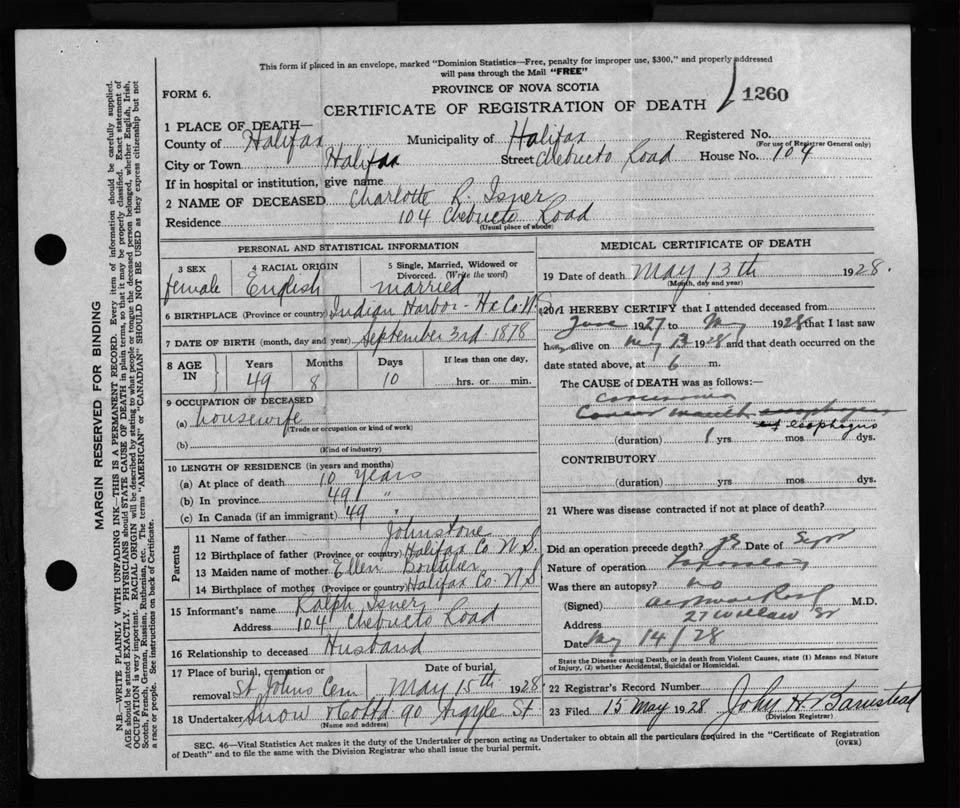 This form if placed in an envelope, marked "Dominion Statistics—Free, penalty for improper use, $300," and properly addressed
will pass through the Mail "FREE"
FORM 6.
PROVINCE OF NOVA SCOTIA
CERTIFICATE OF REGISTRATION OF DEATH
1260
1 PLACE OF DEATH—
County of Halifax Municipality of Halifax Registered No.
(For use of Registrar General only)
City or Town Halifax Street Chebucto Road House No. 104
If in hospital or institution, give name
2 NAME OF DECEASED Charlotte R. Isner
Residence 104 Chebucto Road
(Usual place of abode)
PERSONAL AND STATISTICAL INFORMATION
3 SEX female
4 RACIAL ORIGIN English
5 Single, Married, Widowed or
Divorced. (Write the word)
married
6 BIRTHPLACE (Province or country) Indian Harbor - Hx Co. N.S.
7 DATE OF BIRTH (month, day and year) September 3rd 1878
8 AGE
IN
Years 49
Months 8
Days 10
If less than one day,
hrs. or min.
9 OCCUPATION OF DECEASED
(a) housewife
(Trade or occupation or kind of work)
(b)
(Kind of industry)
10 LENGTH OF RESIDENCE (in years and months)
(a) At place of death 10 years
(b) In province 49 "
(c) In Canada (if an immigrant) 49 "
Parents
11 Name of father Johnstone
12 Birthplace of father (Province or country) Halifax Co. N.S.
13 Maiden name of mother Ellen Boutilier
14 Birthplace of mother (Province or country) Halifax Co. N.S.
15 Informant's name Ralph Isner
Address 104 Chebucto Road
16 Relationship to deceased Husband
17 Place of burial, cremation or Date of burial
removal St Johns Cem May 15th 1928
18 Undertaker Snow & Co Ltd 90 Argyle St.
(Name and address)
MEDICAL CERTIFICATE OF DEATH
19 Date of death May 13th 1928.
(Month, day and year)
20 I HEREBY CERTIFY that I attended deceased from
June 1927 to May 1928 that I last saw
her alive on May 13 1928 and that death occurred on the
date stated above, at 6 m.
The CAUSE of DEATH was as follows:—
carcinoma
of esophagus
(duration) 1 yrs mos dys.
CONTRIBUTORY
(duration) yrs mos dys.
21 Where was disease contracted if not at place of death?
Did an operation precede death? yes Date of Sept
Nature of operation
Was there an autopsy? no
(Signed) M.D.
Address 27 Willow St
Date May 14/28
State the Disease causing Death, or in death from Violent Causes, state (1) Means and Nature
of Injury, (2) whether Accidental, Suicidal or Homicidal.
22 Registrar's Record Number
23 Filed 15 May 1928 John H. Barnstead
(Division Registrar)
SEC. 46—Vital Statistics Act makes it the duty of the Undertaker or person acting as Undertaker to obtain all the particulars required in the "Certificate of Registration
of Death" and to file the same with the Division Registrar who shall issue the burial permit. (OVER)
MARGIN RESERVED FOR BINDING
N.B.—WRITE PLAINLY WITH UNFADING INK—THIS IS A PERMANENT RECORD. Every item of information should be carefully supplied.
AGE should be stated EXACTLY. PHYSICIANS should STATE CAUSE OF DEATH in plain terms, so that it may be properly classified. Exact statement of
OCCUPATION is very important. RACIAL ORIGIN will be described by stating to what people or tongue the deceased person belonged, whether English, Irish,
Scotch, French, German, Russian, Ruthenian, etc. The terms "AMERICAN" or "CANADIAN" SHOULD NOT BE USED as they express citizenship but not
a race or people. See instructions on back of Certificate.